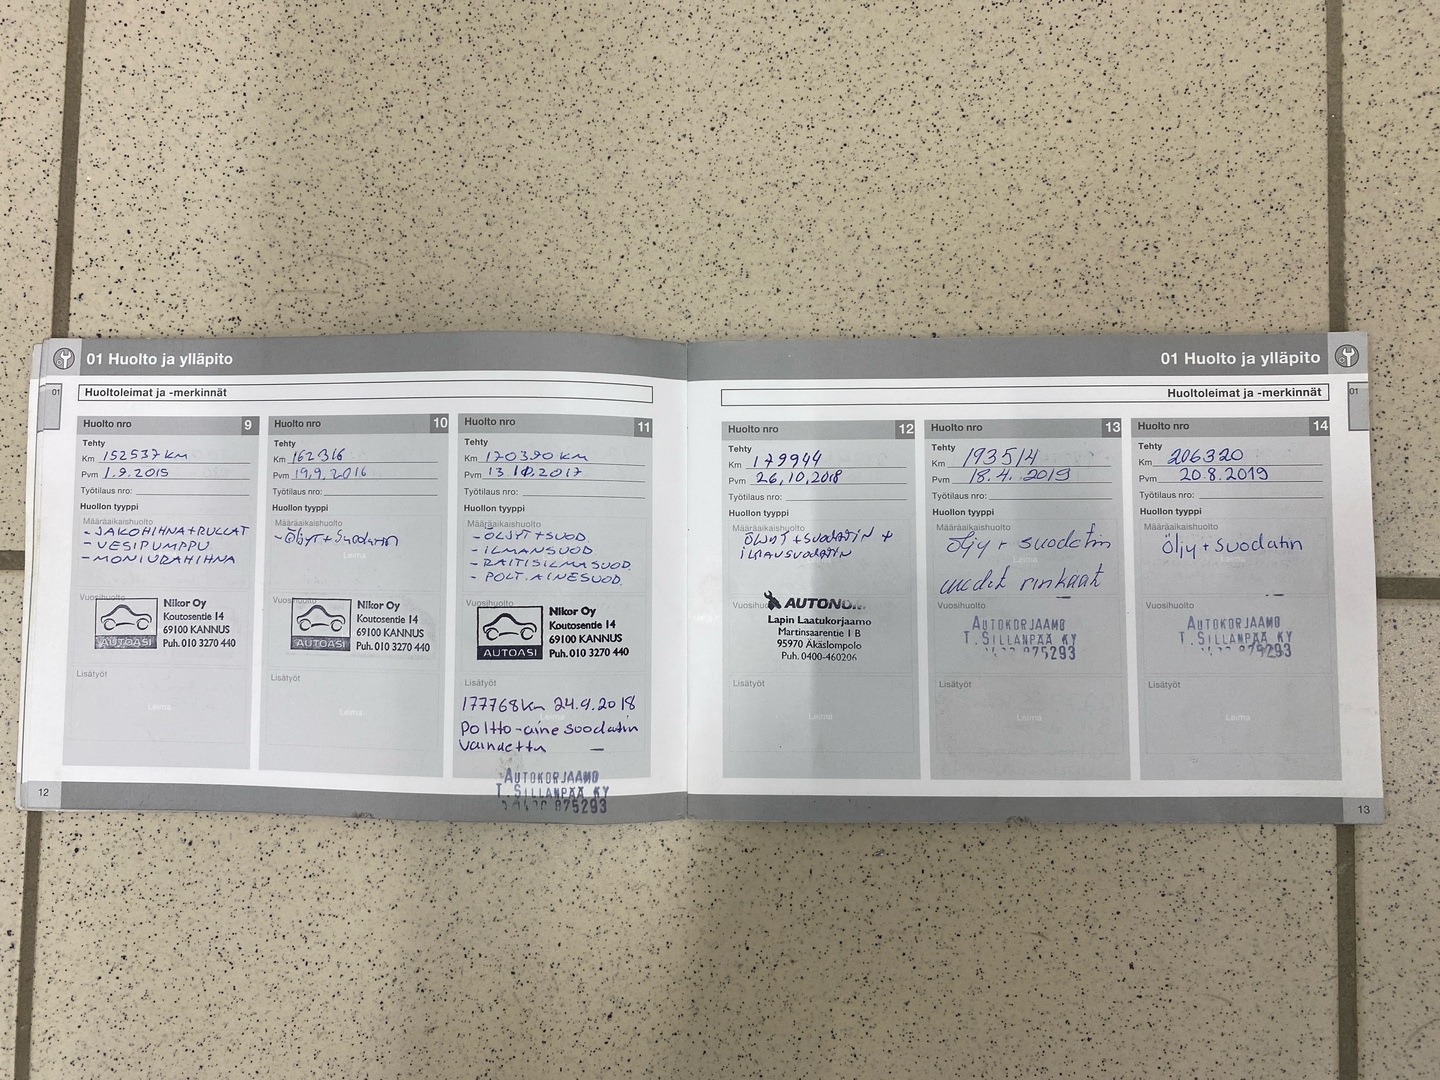 01 Huolto ja ylläpito
01
Huoltoleimat ja -merkinnät
Huolto nro 9
Tehty
Km 152537 km
Pvm 1.9.2015
Työtilaus nro:
Huollon tyyppi
Määräaikaishuolto
- JAKOHIHNA+RULLAT
- VESIPUMPPU
- MONIURAHIHNA
Vuosihuolto
Nikor Oy
Koutosentie 14
69100 KANNUS
Puh. 010 3270 440
AUTOASI
Lisätyöt
Leima
12
Huolto nro 10
Tehty
Km 162316
Pvm 19.9.2016
Työtilaus nro:
Huollon tyyppi
Määräaikaishuolto
- Öljyt + Suodatin
Leima
Vuosihuolto
Nikor Oy
Koutosentie 14
69100 KANNUS
Puh. 010 3270 440
AUTOASI
Lisätyöt
Leima
Huolto nro 11
Tehty
Km 170390 km
Pvm 13.10.2017
Työtilaus nro:
Huollon tyyppi
Määräaikaishuolto
- ÖLJYT + SUOD
- ILMANSUOD
- RAITISILMASUOD.
- POLT.AINESUOD.
Nikor Oy
Koutosentie 14
69100 KANNUS
Puh. 010 3270 440
AUTOASI
Lisätyöt
177768km 24.9.2018
Poltto-aine suodatin
vaihdettu
AUTOKORJAAMO
T. SILLANPÄÄ KY
875293
01 Huolto ja ylläpito
01
Huoltoleimat ja -merkinnät
Huolto nro 12
Tehty
Km 179944
Pvm 26.10.2018
Työtilaus nro:
Huollon tyyppi
Määräaikaishuolto
ÖLJYT + SUODATIN +
ILMANSUODATIN
Vuosihuolto
Lapin Laatukorjaamo
Martinsaarentie 1 B
95970 Äkäslompolo
Puh. 0400-460206
Lisätyöt
Leima
Huolto nro 13
Tehty
Km 193514
Pvm 18.4.2019
Työtilaus nro:
Huollon tyyppi
Määräaikaishuolto
Öljy + suodatin
uudet renkaat
Vuosihuolto
AUTOKORJAAMO
T. SILLANPÄÄ KY
875293
Lisätyöt
Leima
Huolto nro 14
Tehty
Km 206320
Pvm 20.8.2019
Työtilaus nro:
Huollon tyyppi
Määräaikaishuolto
Öljy + suodatin
Vuosihuolto
AUTOKORJAAMO
T. SILLANPÄÄ KY
875293
Lisätyöt
Leima
13